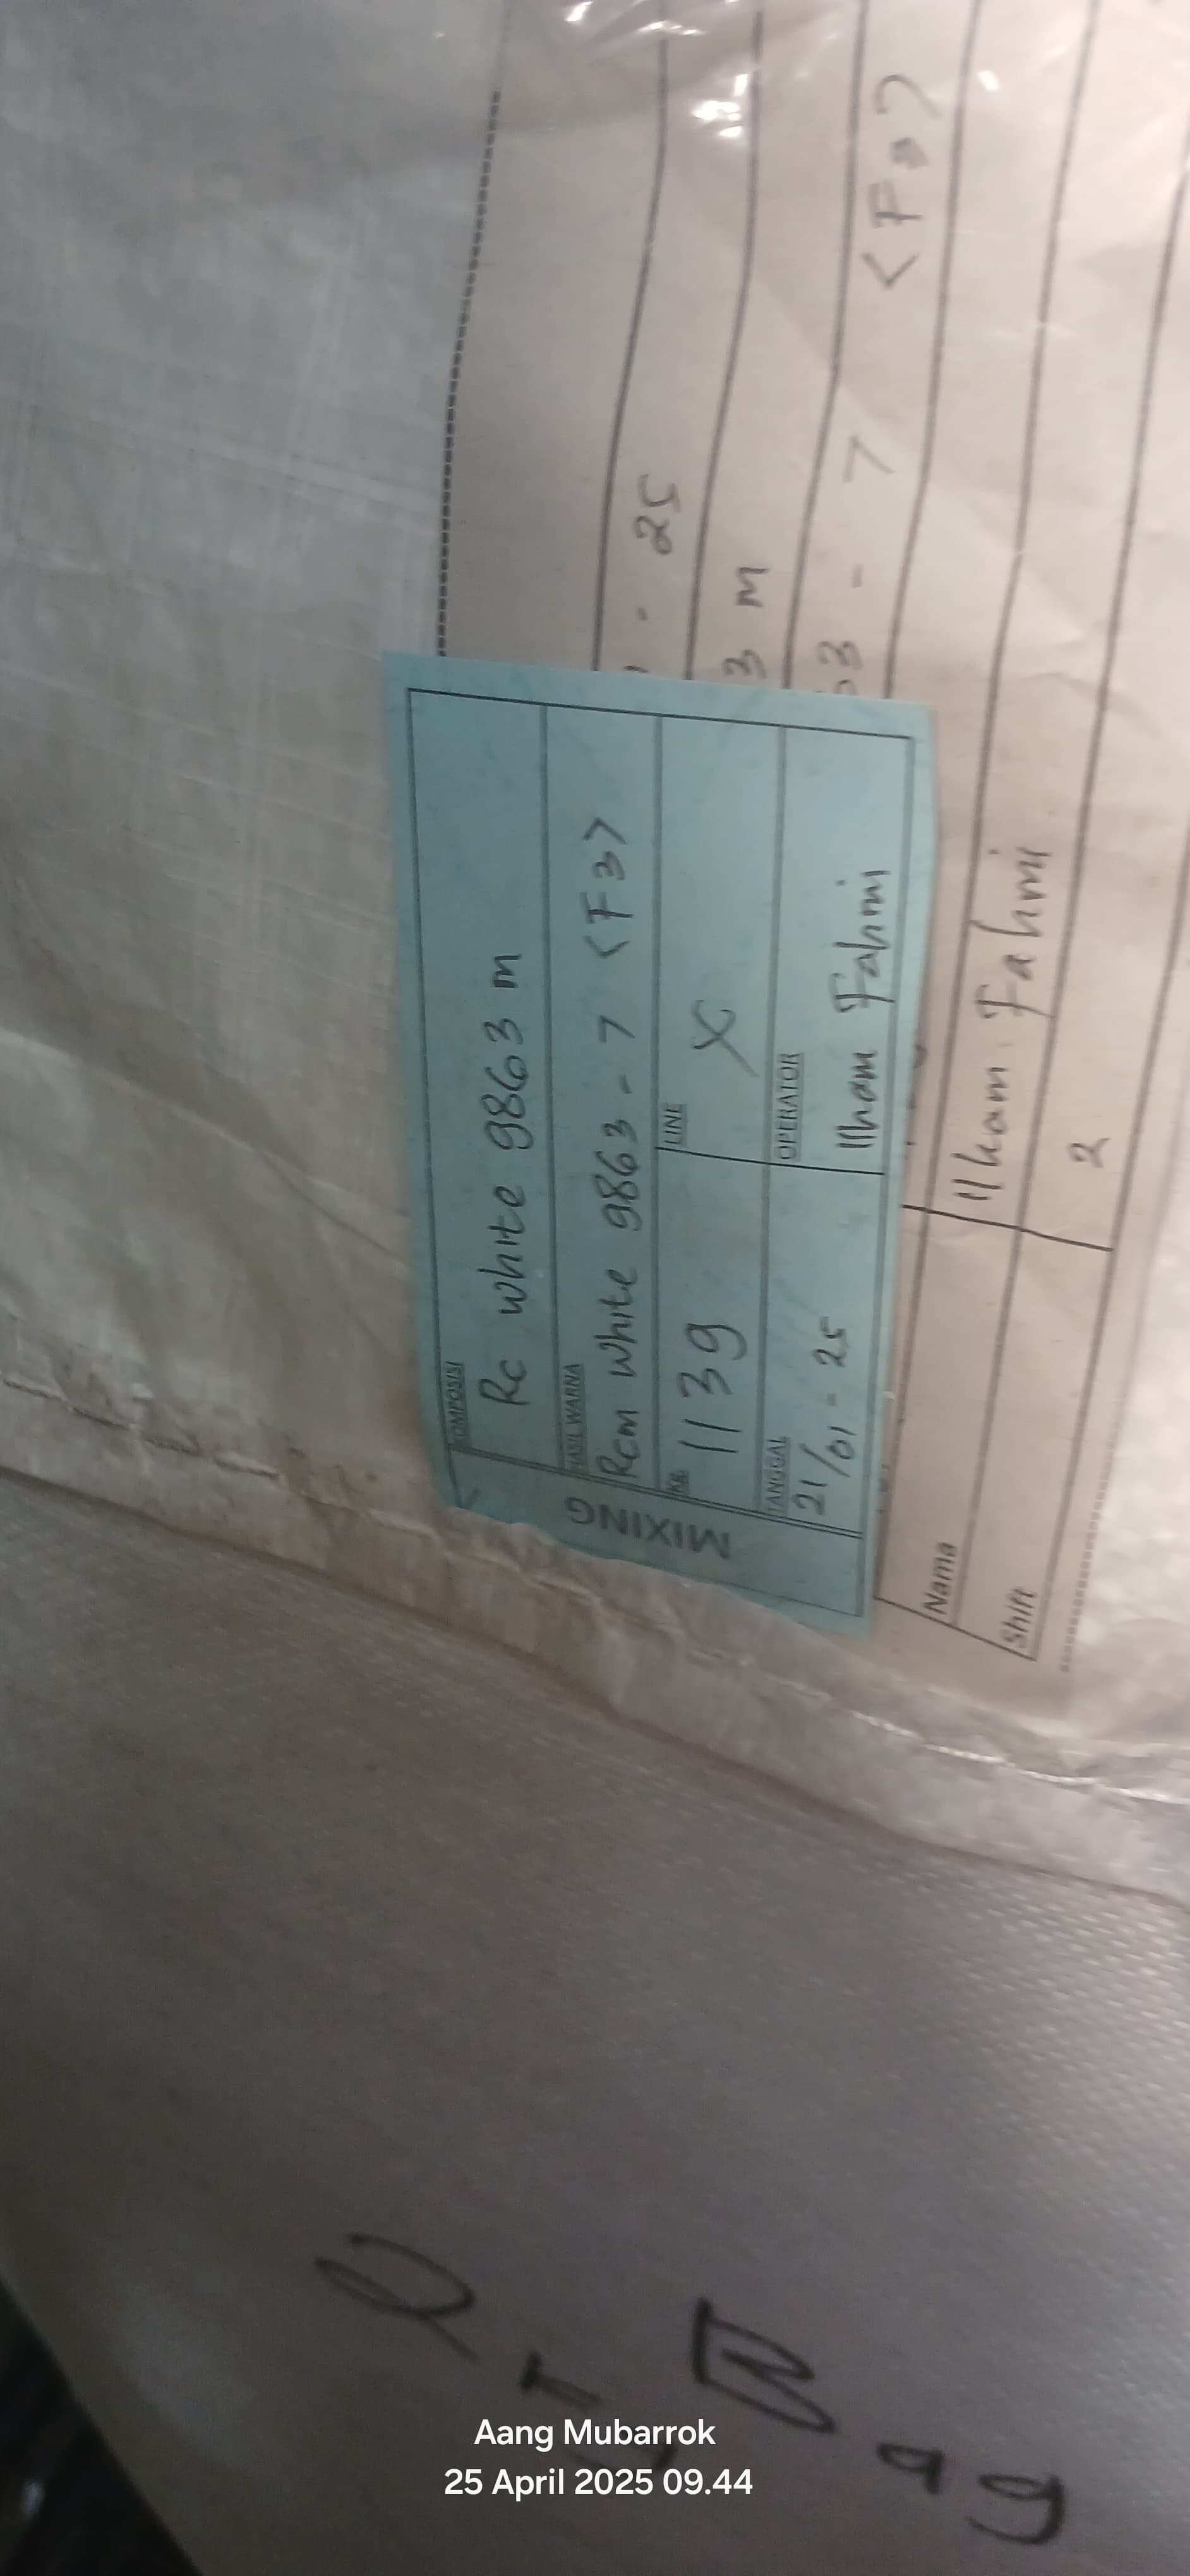 MIXING
KOMPOSISI
Rc white 9863 m
HASIL WARNA
Rcm white 9863 - 7 <F3>
KG
1139
LINE
X
TANGGAL
21/01 - 25
OPERATOR
Ilham Fahmi
- 25
3 m
63 - 7 <F3>
Nama
Ilham. Fahmi
Shift
2
Aang Mubarrok
25 April 2025 09.44